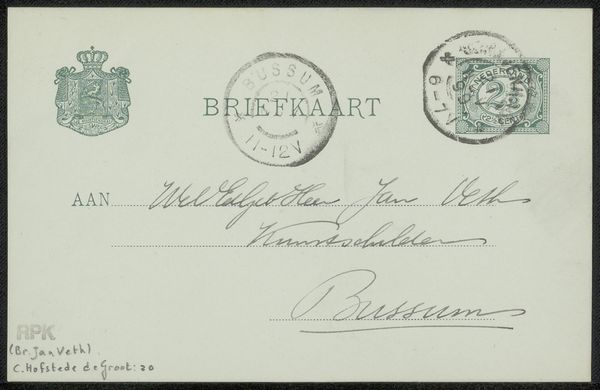 BRIEFKAART
BUSSUM
11-12V
6-7V
NEDERLAND
2½
CENT
AAN Wel Edelgeb Heer Jan Veth
Kunstschilder
Bussum
RPK
(Br. Jan Veth).
C. Hofstede de Groot: 20